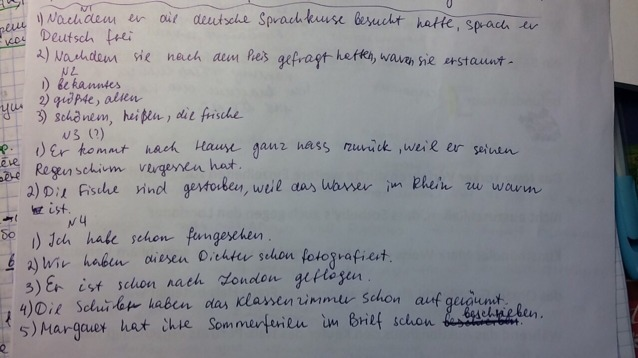 N1
1) Nachdem er die deutsche Sprachkurse besucht hatte, sprach er
Deutsch frei
2) Nachdem sie nach dem Preis gefragt hatten, waren sie erstaunt.
N2
1) bekanntes
2) größte, alten
3) schönem, heißen, die frische
N3 (?)
1) Er kommt nach Hause ganz nass zurück, weil er seinen
Regenschirm vergessen hat.
2) Die Fische sind gestorben, weil das Wasser im Rhein zu warm
ist.
N4
1) Ich habe schon ferngesehen.
2) Wir haben diesen Dichter schon fotografiert.
3) Er ist schon nach London geflogen.
4) Die Schüler haben das Klassenzimmer schon aufgeräumt.
5) Margaret hat ihre Sommerferien im Brief schon beschrieben.